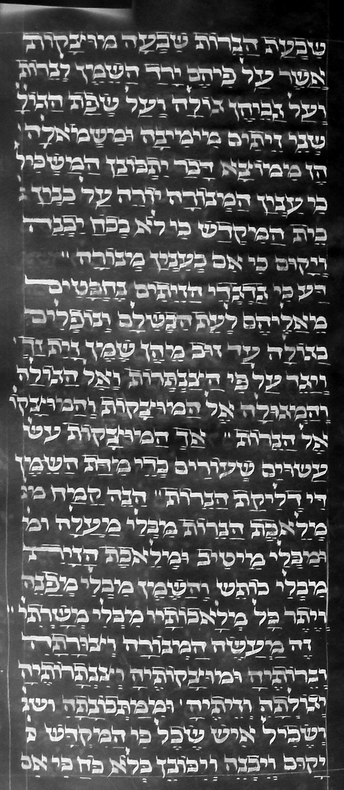 שבעת הנרות שבעה מוצקות
אשר על פיהם ירד השמן לנרות
ועל גביהן גולה ועל שפת הגולה
שני זיתים מימינה ומשמאלה
הן ממוצא דבר יתבונן המשכיל
כי ענין המנורה יורה על בנין
בית המקדש כי לא בכח יבנה
ויקום כי אם כענין מנורה
רע כי גרגרי הזיתים נחבטים
מאליהם לעת הבשלם ונופלים
בגולה עד זוב מהן שמן זית זך
ויצר על פי הצנתרות ואל הגולה
והמגולה אל המוצקות והמוצקות
אל הנרות אך המוצקות
עשוים שעורים כדי מדת השמן
די דליקת הנרות הנה קמח
מלאכת הנרות מבלי מעלה
ומבלי מיטיב ומלאכת הזית
מבלי כותש והשמן מבלי מפנה
ויתר כל מלאכותיו מבלי משרתי
זה מעשה המנורה וצורתה
נרותיה ומוצקותיה וצנתרותיה
וגולתה וזיתיה וממתכונתה
ישכיל איש שכל כי המקדש
יקום ויבנה ויכונן בלא כח כי אם